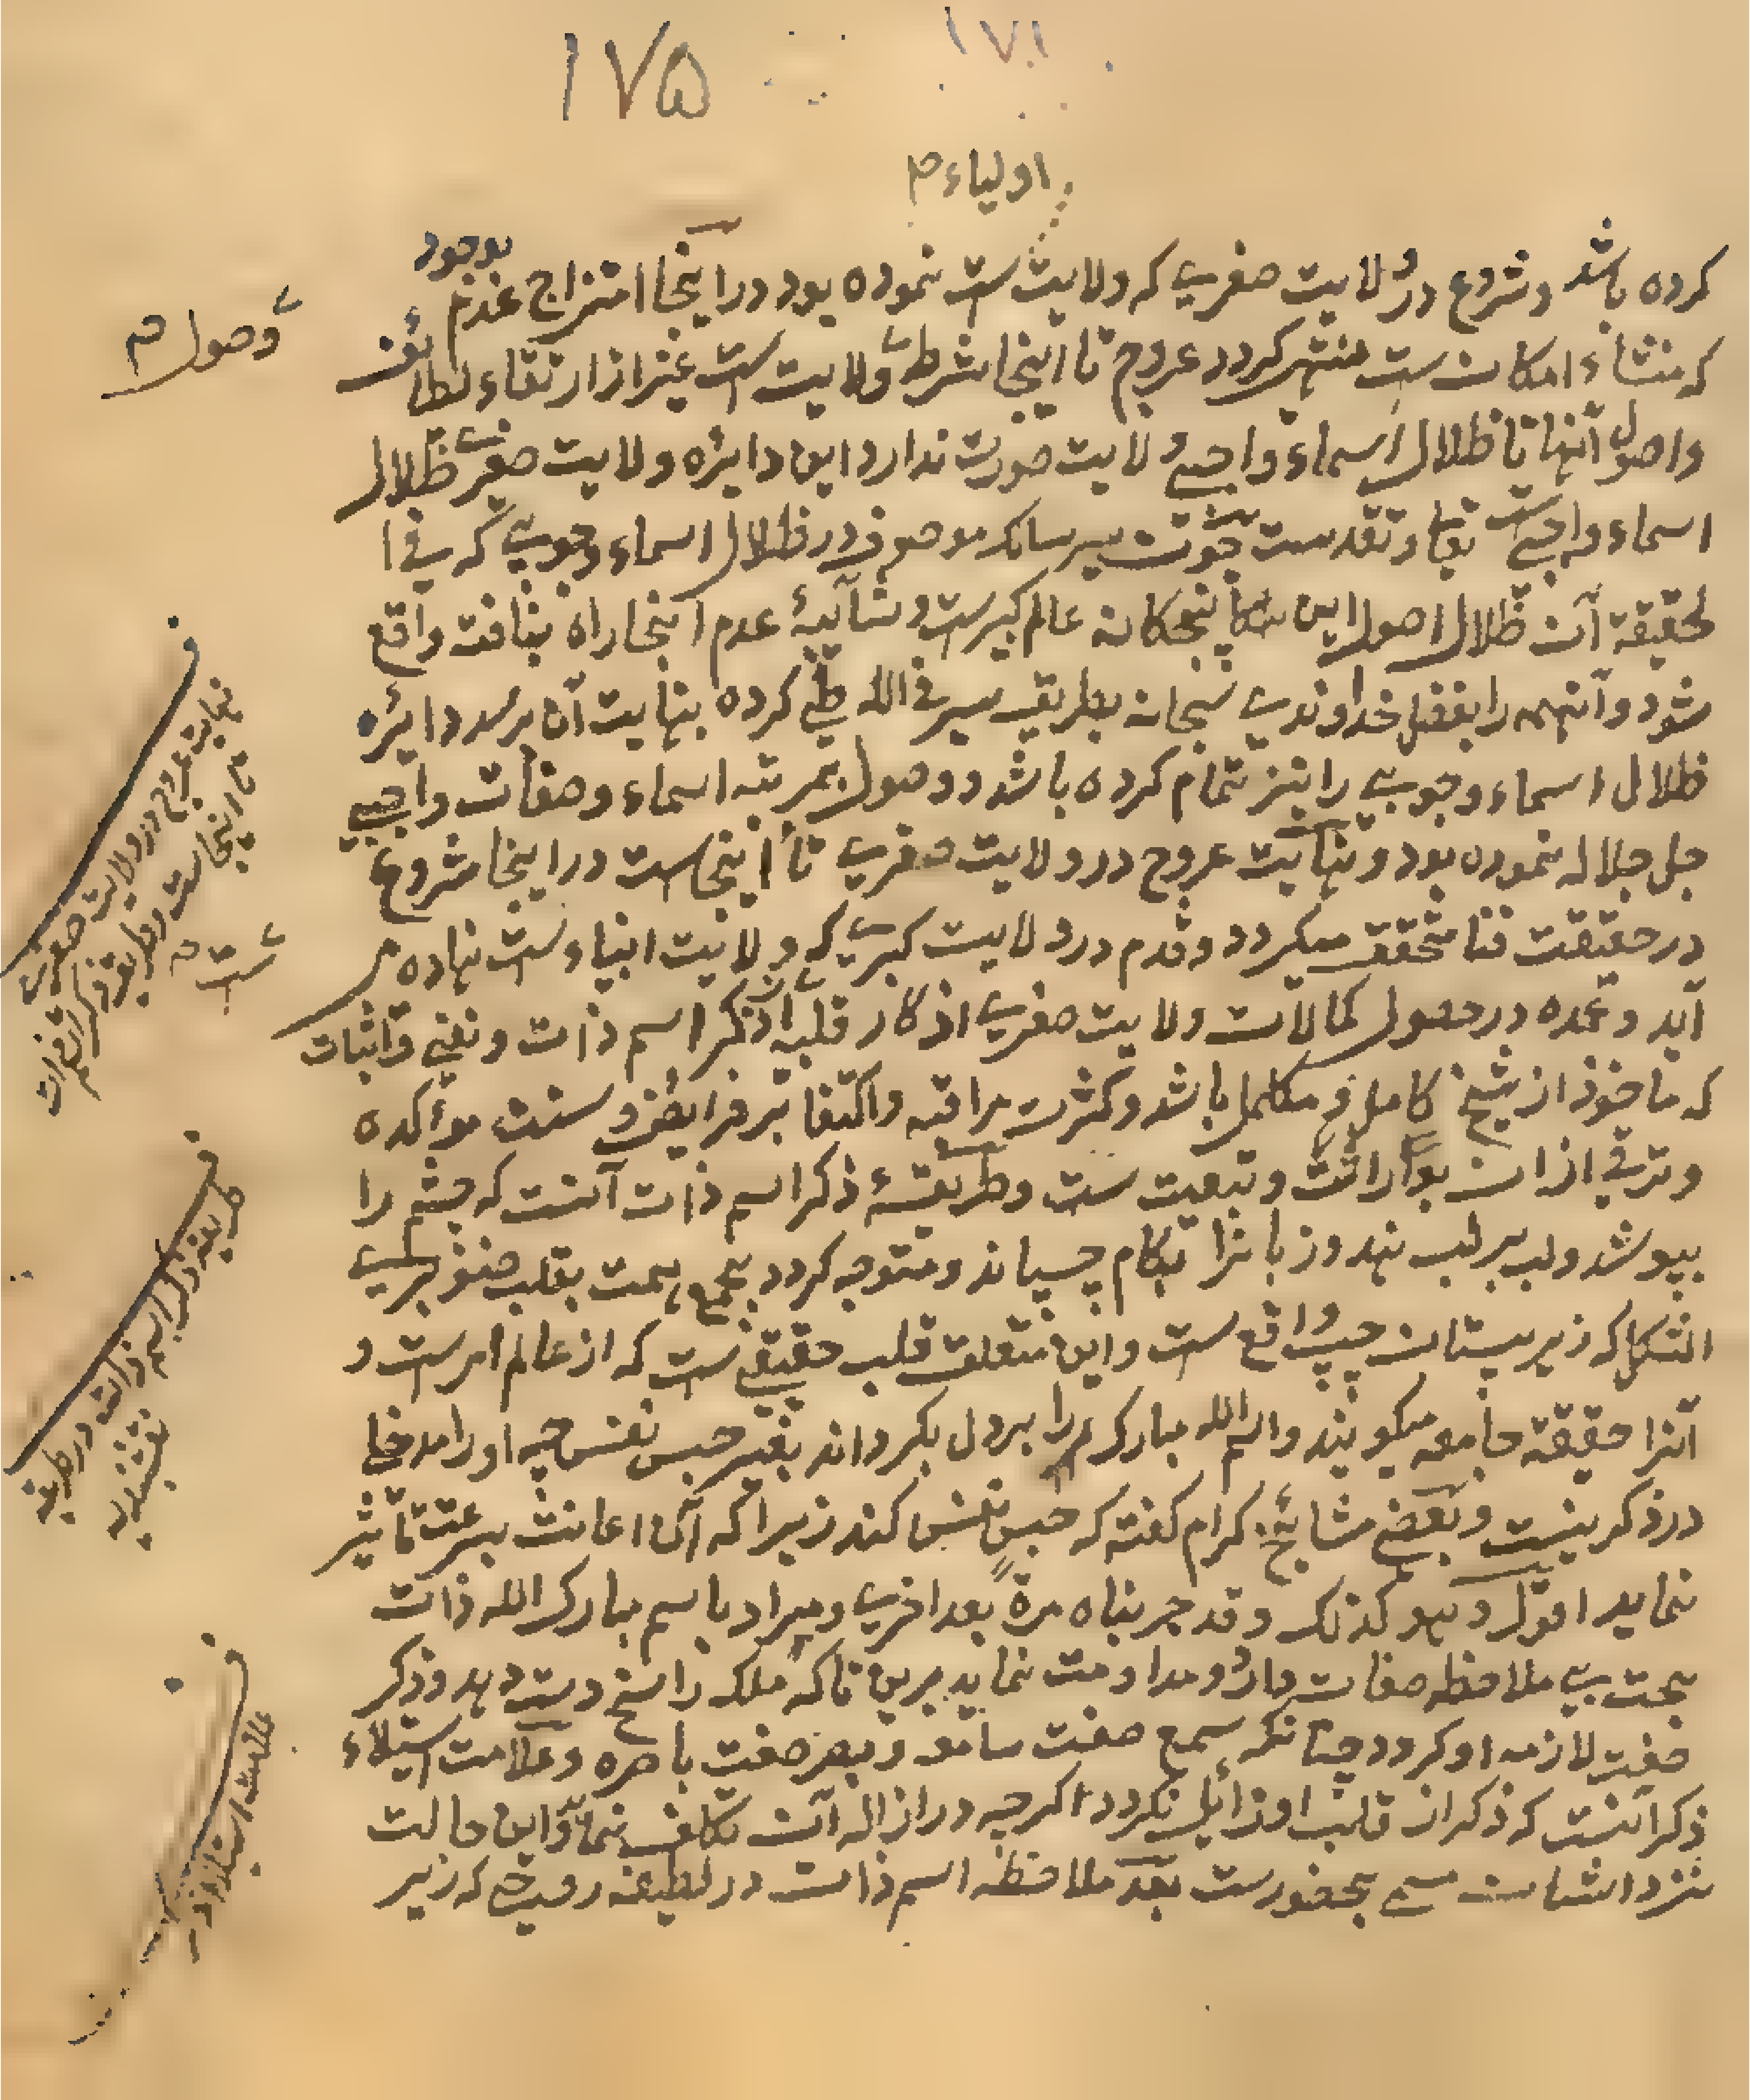 ۱۷۱
۱۷۵
اولیاء م
بوجود
کرده باشد و شروع در ولایت صغری که ولایت ست نموده بود در اینجا امتزاج عدم
که منشاء امکان ست منتهی کردد عروج تا اینجا شرط ولایت ست غیر از ارتقاء لطائف
واصول آنها تا ظلال اسماء واجبی ولایت صورت ندارد این دایره ولایت صغری ظلال
اسماء واجبی ست تعالی وتقدست چون سیر سالک موصوف در ظلال اسماء وجوبی که فی ا
لحقیقة آن ظلال اصول این پنجکانه عالم کبیرست و شآیبهٔ عدم اینجا راه نیافت واقع
شود وآنهمه را بفضل خداوندی سبحانه بطریق سیر فی الله طی کرده بنهایت آن برسد دایره
ظلال اسماء وجوبی را نیز تمام کرده باشد ووصول بمرتبه اسماء وصفات واجبی
جل جلاله نموده بود ونهایت عروج در ولایت صغری تا اینجاست در اینجا شروع
در حقیقت فنا متحقق میکردد وقدم در ولایت کبری که ولایت انبیاء ست نهاده می
آید وعمده در حصول کمالات ولایت صغری اذکار قلبیه از ذکر اسم ذات ونفی واثبات
که ماخوذ از شیخ کامل ومکمل باشد وکثرت مراقبه واکتفا بر فرایض وسنت موءکده
وترقی ازان بوراثت وتبعیت ست وطریقهٔ ذکر اسم ذات آنست که چشم را
بپوشد ولب بر لب نهد وزبانرا بکام چسپاند ومتوجه کردد بجمع همت بقلب صنوبری
الشکل که زیر پستان چپ واقع ست واین متعلق قلب حقیقی ست که از عالم امرست و
آنرا حقیقة جامعه میکویند واسم الله مبارک را بر دل بکرداند بغیر حبس نفس چه او را مدخلی
در ذکر نیست وبعضی مشایخ کرام کفته که حبس نفس کند زیرا که آن اعانت بسرعت تأثیر
نماید اقول وهو کذلک وقد جربناه مرةً بعد اخری ومراد باسم مبارک الله ذات
بحت بی ملاحظه صفات دارد ومداومت نماید برین تا که ملکه راسخ دست دهد وذکر
صفت لازمه او کردد چنانکه سمع صفت سامعه وبصر صفت باصره وعلامت استیلاء
ذکر آنست که ذکر از قلب او زائل نکردد اکرچه در ازاله آن تکلف نماید واین حالت
نزد اشان مسمی بحضورست بعد ملاحظه اسم ذات در لطیفه روحی که زیر
وصول م
نهایت عروج در ولایت صغری
تا اینجا ست
ست
طریقه ذکر اسم ذات در طریقه
نقشبندیه
علامت استیلاء ذکر